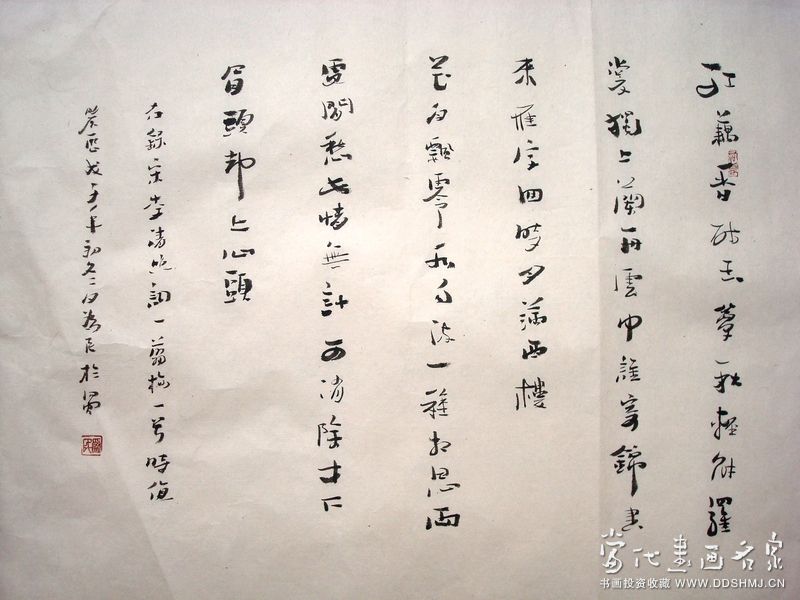 紅藕香殘玉簟秋輕解羅
裳獨上蘭舟雲中誰寄錦書
來雁字回時月滿西樓
花自飄零水自流一種相思兩
處閒愁此情無計可消除才下
眉頭却上心頭
右録宋李清照詞一翦梅一首時值
年初冬於蜀
當代書画名家
书画投资收藏 WWW.DDSHMJ.CN